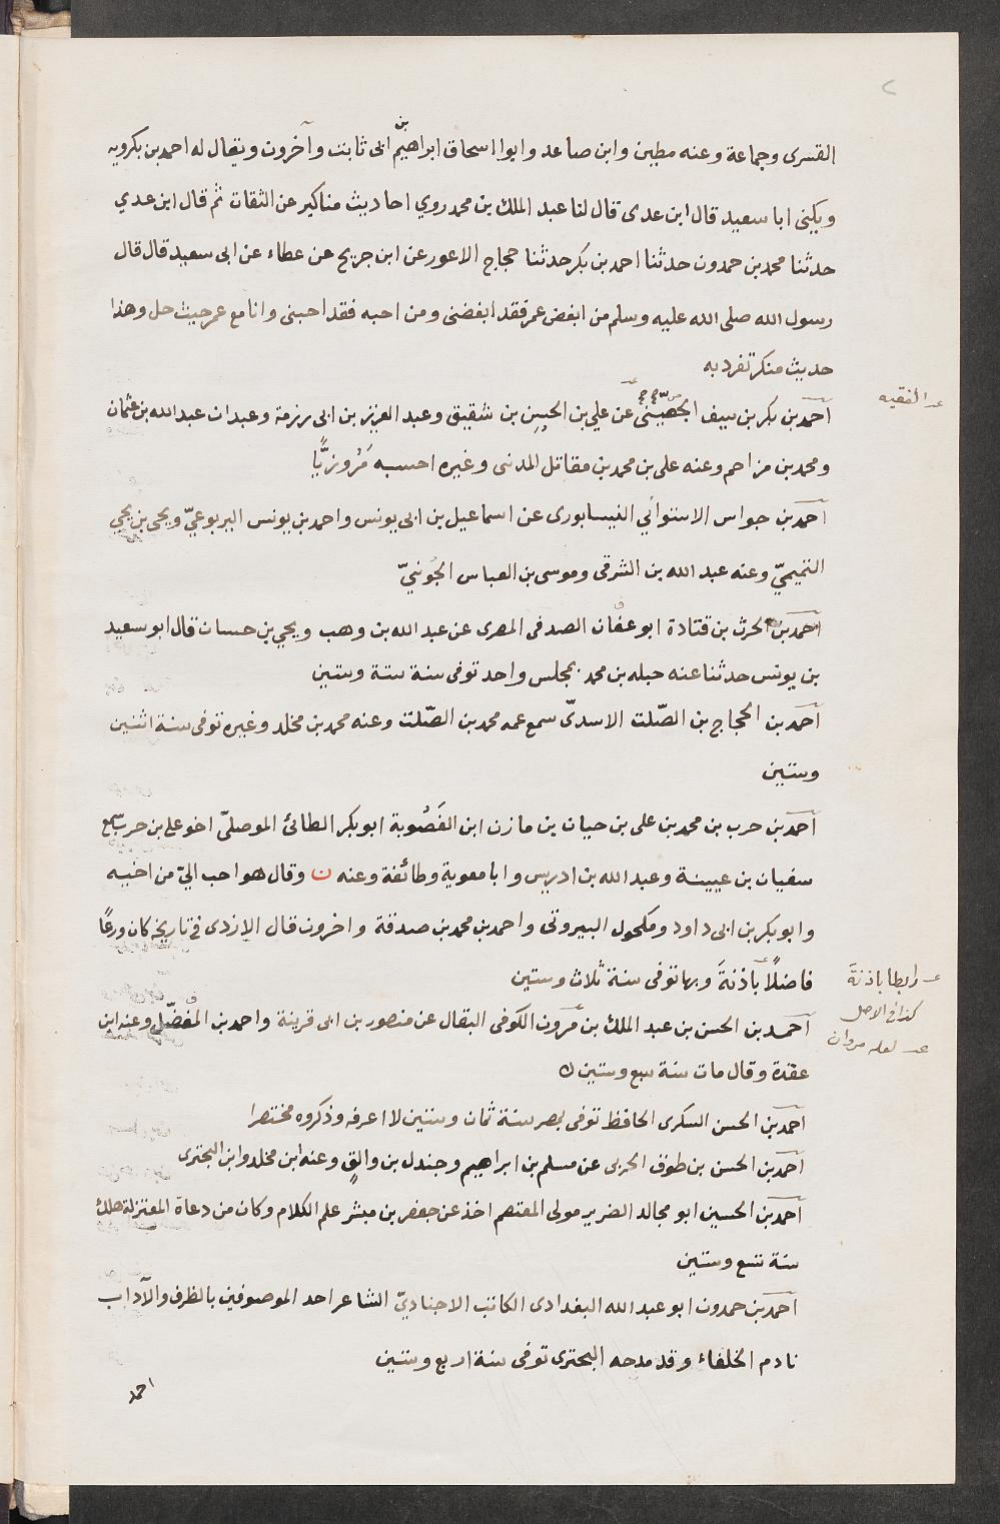 ٢
القسرى وجماعة وعنه مطين وابن صاعد وابوا اسحاق ابراهيم بن ابى ثابت وآخرون ويقال له احمد بن بكرويه
ويكنى ابا سعيد قال ابن عدى قال لنا عبد الملك بن محمد روي احاديث مناكير عن الثقات ثم قال ابن عدي
حدثنا محمد بن حمدون حدثنا احمد بن بكر حدثنا حجاج الاعور عن ابن جريج عن عطاء عن ابى سعيد قال قال
رسول الله صلى الله عليه وسلم من ابغض عمر فقد ابغضنى ومن احبه فقد احبنى وانا مع عمر حيث حل وهذا
حديث منكر تفرد به
عـ الفقيه
احمد بن بكر بن سيف الجصينى عن علي بن الحسن بن شقيق وعبد العزيز بن ابى رزمة وعبدان عبد الله بن عثمان
ومحمد بن مزاحم وعنه على بن محمد بن مقاتل المدنى وغيره احسبه مَرْوزيًّا
احمد بن جواس الاستوائي النيسابورى عن اسماعيل بن ابى يونس واحمد بن يونس اليربوعيّ ويحى بن يحيى
التميميّ وعنه عبد الله بن الشرقى وموسى بن العباس الجُونيّ
احمد بن الحرث بن قتادة ابو عفان الصدفى المصرى عن عبد الله بن وهب ويحيى بن حسان قال ابو سعيد
بن يونس حدثنا عنه حبله بن محمد بمجلس واحد توفى سنة ستة وستين
احمد بن الحجاج بن الصّلت الاسدىّ سمع عمه محمد بن الصّلت وعنه محمد بن مخلد وغيره توفى سنة اثنين
وستين
احمد بن حرب بن محمد بن على بن حيان بن مازن ابن الغَضُوبة ابو بكر الطائئ الموصلىّ اخو على بن حرب سمع
سفيان بن عيينة وعبد الله بن ادريس وابا معوية وطائفة وعنه ن وقال هو احب اليّ من اخيه
وابو بكر بن ابى داود ومكحول البيروتى واحمد بن محمد بن صدقة واخرون قال الازدى فى تاريخه كان ورعًا
فاضلًا باذنةَ وبها توفى سنة ثلاث وستين
عـ رابطا باذنةَ
احمد بن الحسن بن عبد الملك بن مرون الكوفى البقال عن منصور بن ابى قرينة واحمد بن المفضّل وعنه ابن
كذا فى الاصل
عـ لعله مروان
عقدة وقال مات سنة سبع وستين ں
احمد بن الحسن السكرى الحافظ توفى بمصر سنة ثمان وستين لا اعرفه وذكروه مختصرا
احمد بن الحسن بن طوق الحربى عن مسلم بن ابراهيم وجندل بن والقٍ وعنه ابن مخلد وابن البجترى
احمد بن الحسين ابو مجالد الضرير مولى المعتصم اخذ عن جعفر بن مبشر علم الكلام وكان من دعاة المعتزلة هلك
سنة تسع وستين
احمد بن حمدون ابو عبد الله البغدادى الكاتب الاجناديّ الشاعر احد الموصوفين بالظرف والآداب
نادم الخلفاء وقد مدحه البحترى توفى سنة اربع وستين
احمد